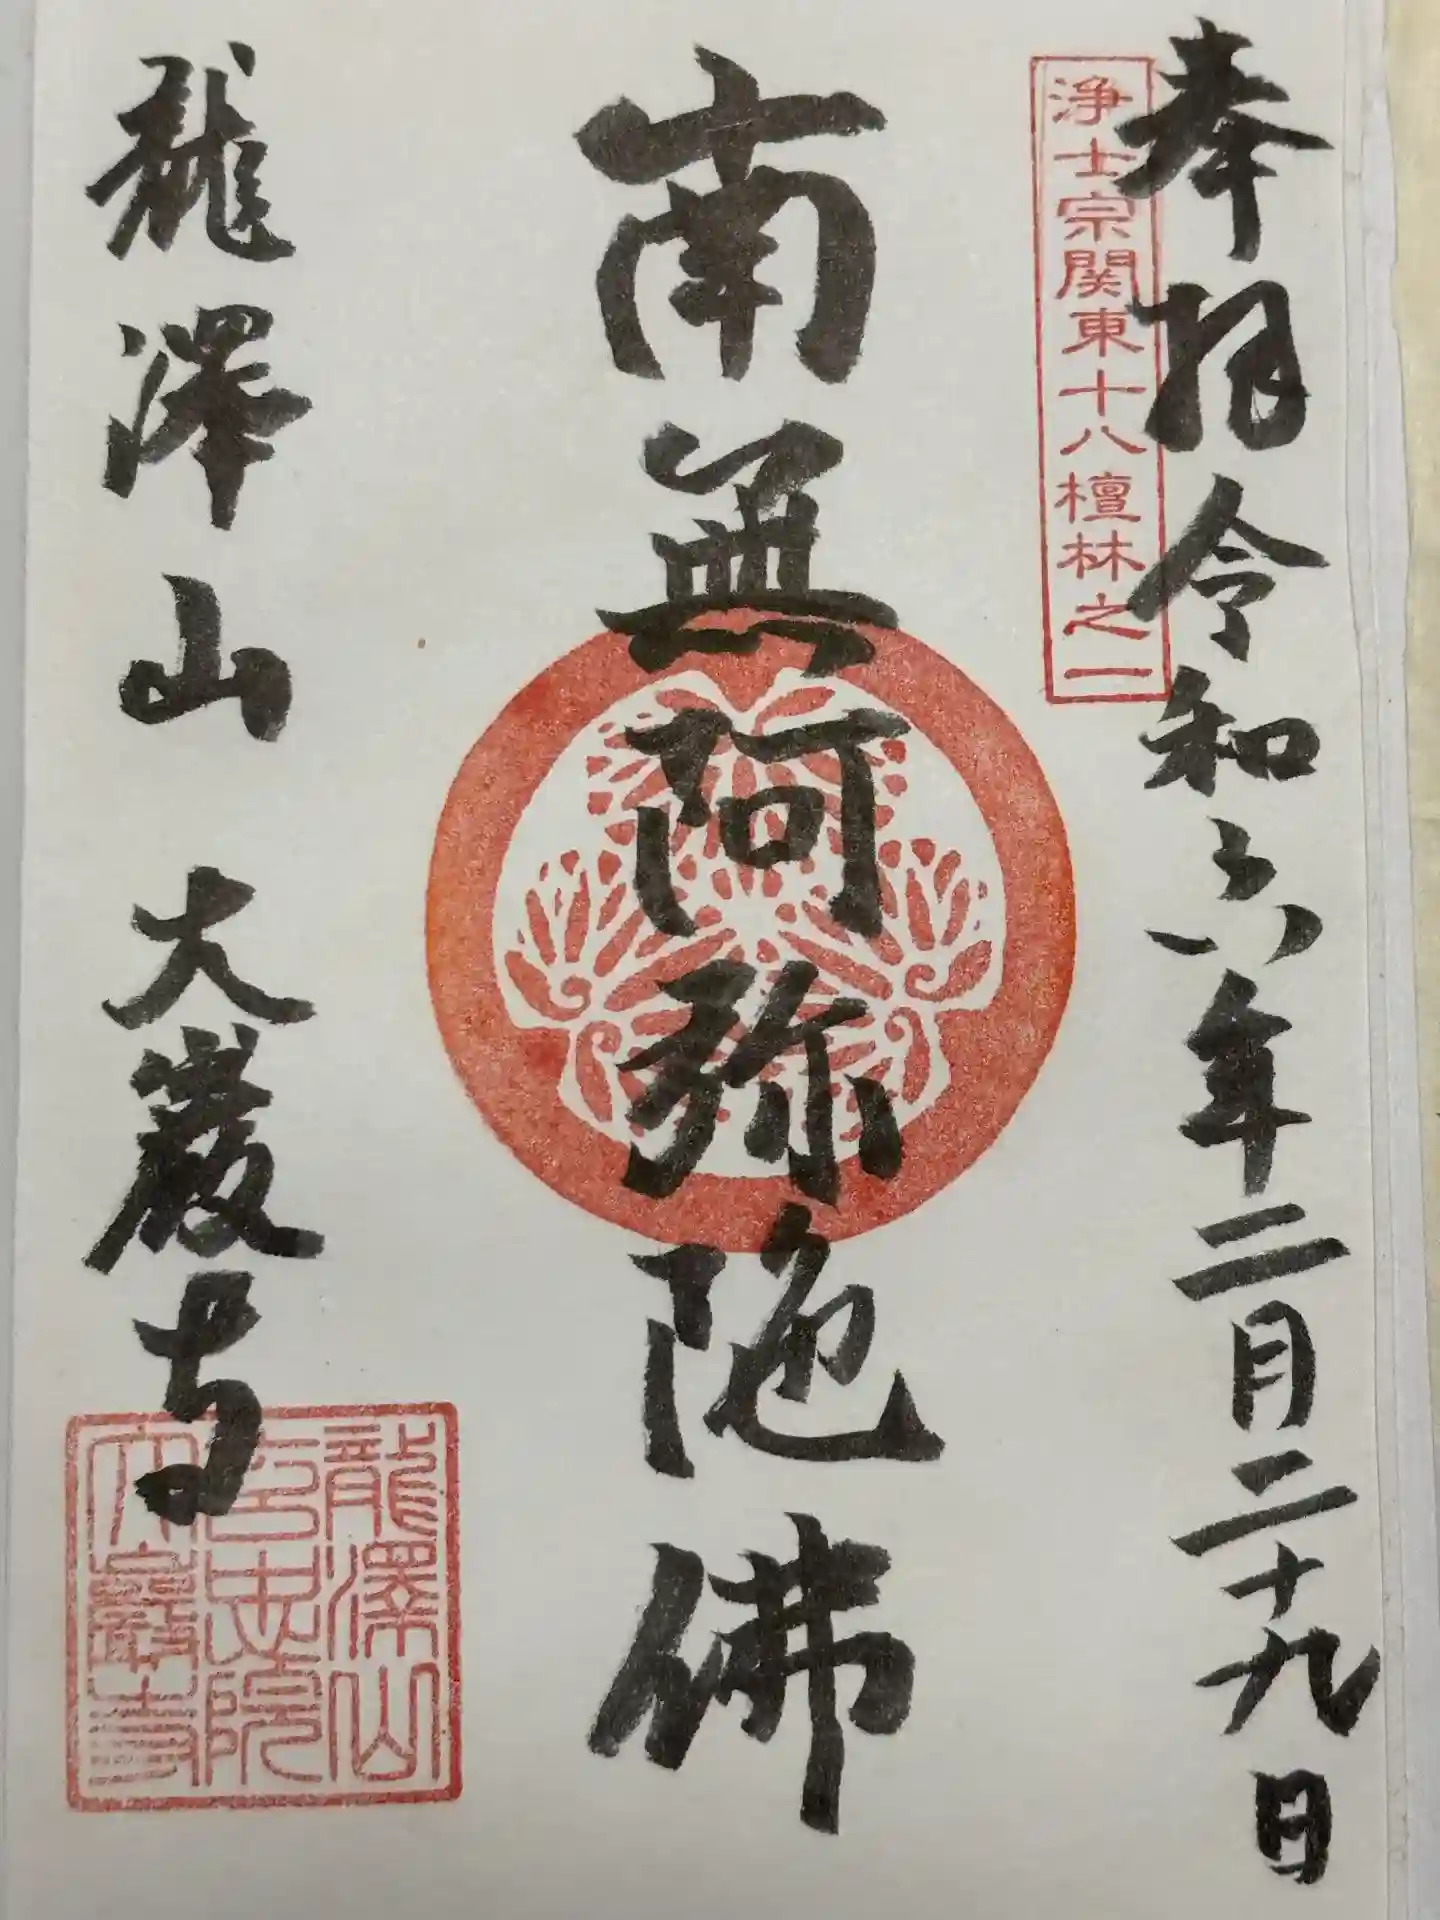 奉拝 令和六年二月二十九日
浄土宗関東十八檀林之一
南無阿弥陀佛
龍澤山 大巌寺
龍澤山
玄忠院
大巌寺